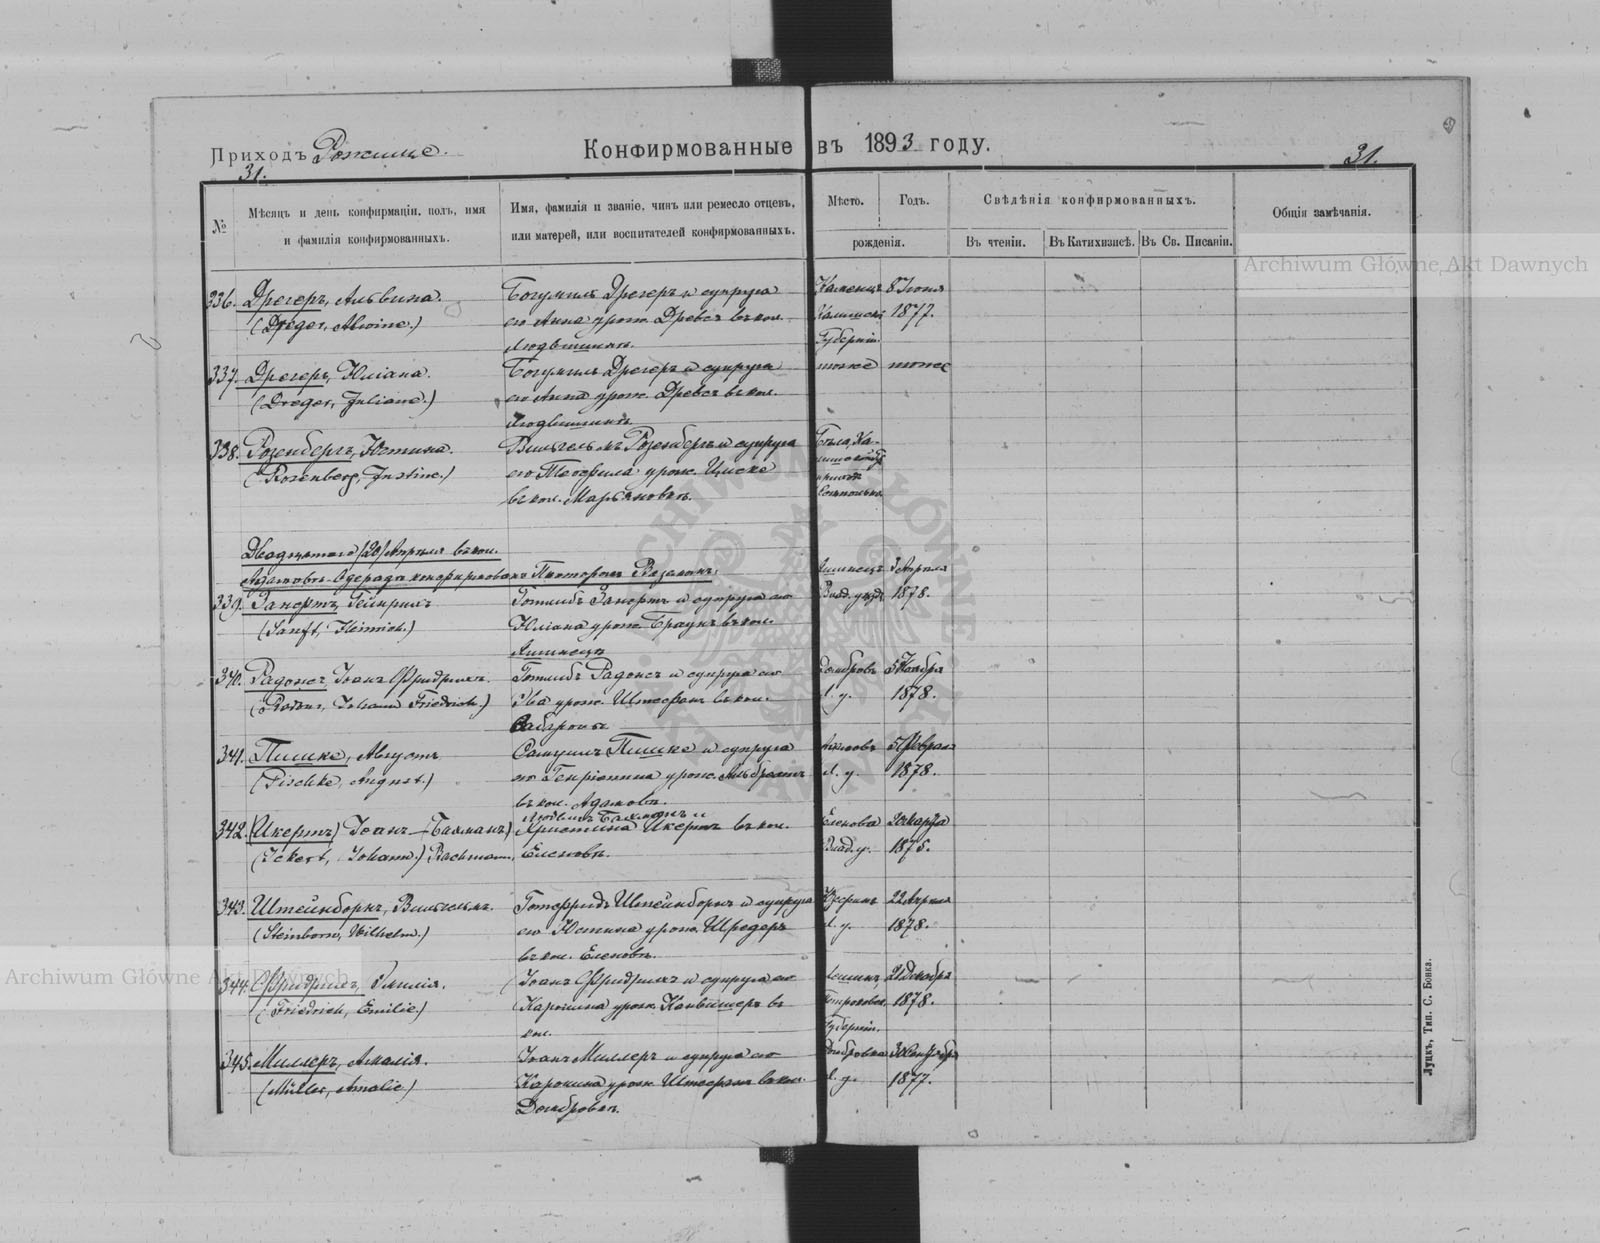 Приходъ Рожище.
Конфирмованные въ 1893 году.
31.
31.
№
Мѣсяцъ и день конфирмаціи, полъ, имя
и фамилія конфирмованныхъ.
Имя, фамилія и званіе, чинъ или ремесло отцевъ,
или матерей, или воспитателей конфирмованныхъ.
Мѣсто.
Годъ.
рожденія.
Свѣдѣнія конфирмованныхъ.
Въ чтеніи.
Въ Катихизисѣ.
Въ Св. Писаніи.
Общія замѣчанія.
336. Дрегеръ, Альвина.
(Dreger, Alwine.)
Богумилъ Дрегеръ и супруга
его Анна урож. Древсъ въ кол.
Людвишинъ.
Каменец
Калишск.
Губерніи.
8 Іюня
1877.
337. Дрегеръ, Юліана.
(Dreger, Juliane.)
Богумилъ Дрегеръ и супруга
его Анна урож. Древсъ въ кол.
Людвишинъ.
тоже
тоже
338. Розенбергъ, Юстина.
(Rosenberg, Justine.)
Вильгельмъ Розенбергъ и супруга
его Теофила урож. Циске
въ кол. Марьяновкѣ.
Двадцатаго (20) Апрѣля въ кол.
Адамовъ-Одерадъ конфирмованъ Пасторомъ
339. Занфтъ, Гейнрихъ
(Sanft, Heinrich.)
Готлибъ Занфтъ и супруга его
Юліана урож. Браунъ въ кол.
Влад. уѣзда
Апрѣля
1878.
340. Радонсъ, Іоанъ Фридрихъ.
(Radons, Johann Friedrich.)
Готлибъ Радонсъ и супруга его
Ева урож. Штефанъ въ кол.
Домбровъ
Л. у.
5 Ноября
1878.
341. Пишке, Августъ
(Pischke, August.)
Самуилъ Пишке и супруга
его Генріетта урож. Альбрехтъ
въ кол. Адамовъ.
Адамовъ
Л. у.
5 Февраля
1878.
342. (Икертъ) Іоанъ - Бахманъ)
(Ickert, Johann.) Bachmann,
Людвигъ Бахманъ и
Христина Икертъ въ кол.
Еленовъ.
Еленова
Влад. у.
20 Марта
1875.
343. Штейнборнъ, Вильгельмъ.
(Steinborn, Wilhelm.)
Готфридъ Штейнборнъ и супруга
его Юстина урож. Шредеръ
въ кол. Еленовъ.
Юзефинъ
Л. у.
22 Апрѣля
1878.
344. Фридрихъ, Эмилія.
(Friedrich, Emilie.)
Іоанъ Фридрихъ и супруга его
Каролина урож. Канвишеръ въ
кол.
Петроковск.
Губерніи.
21 Декабря
1878.
345. Миллеръ, Амалія.
(Müller, Amalie.)
Іоанъ Миллеръ и супруга его
Каролина урож. Штефанъ въ кол.
Домбровкѣ.
Домбровка
Л. у.
30 Сентября
1877.
Луцкъ, Тип. С. Бонка.
Archiwum Główne Akt Dawnych
Archiwum Główne Akt Dawnych